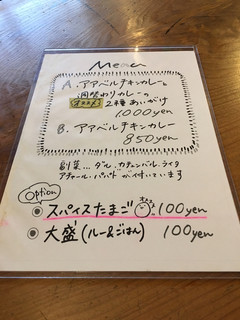 Menu
A. アアベルチキンカレーと
週替わりカレーの
オススメ! 2種あいがけ
1,000yen
B. アアベルチキンカレー
850yen
副菜... ダル、カチュンバル、ライタ
アチャール、パパドが付いています
Option
スパイスたまご 100yen
大盛(ルー&ごはん) 100yen